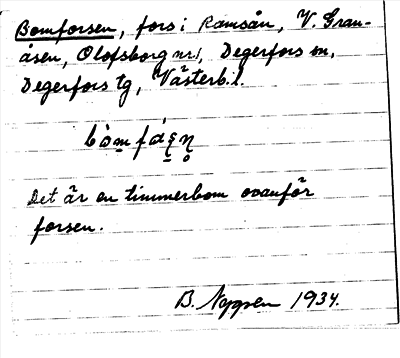 Bomforsen, fors i Ramsån, V. Gran-
åsen, Olofsborg nr 1, Degerfors sn,
Degerfors tg, Västerb. l.
Det är en timmerbom ovanför
forsen.
B. 1934.